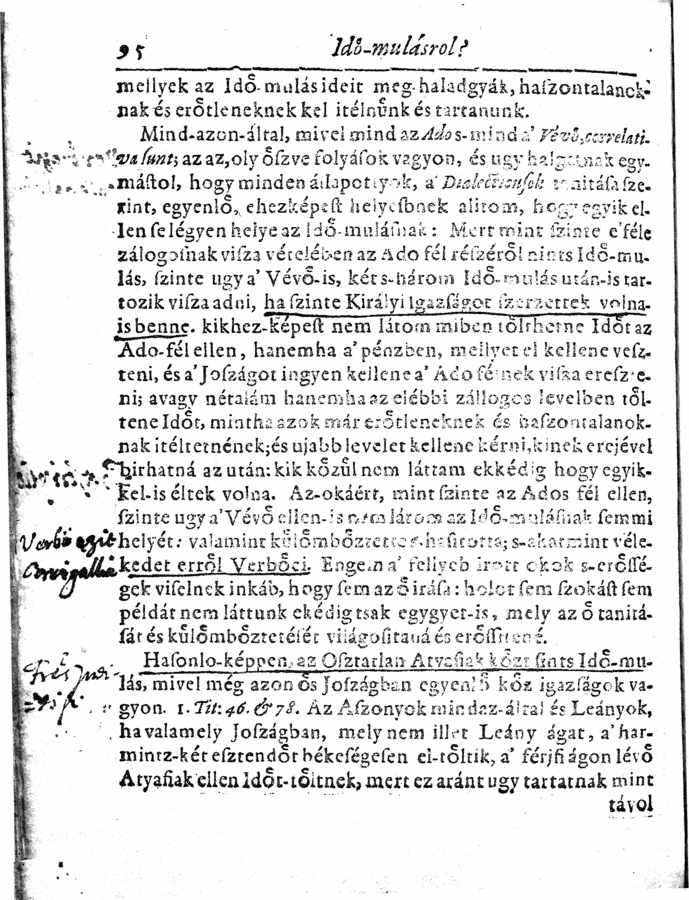 95 Idő-mulásrol?
mellyek az Idő-mulás ideit meg-haladgyák, haſzontalanok-
nak és erőtleneknek kel itélnünk és tartanunk.
Mind-azon-által, mivel mind az Ados-mind a' Vévő, correlati-
va ſunt; az az, oly őſzve folyáſok vagyon, és ugy halgatnak egy-
máſtol, hogy minden állapottyok, a' Dialecticuſok tanitáſa ſze-
rint, egyenlő, ehezképeſt helyeſbnek alitom, hogy egyik el-
len ſe légyen helye az Idő-muláſnak: Mert mint ſzinte e'féle
zálogoſnak viſza vételében az Ado fél réſzéről nints Idő-mu-
lás, ſzinte ugy a' Vévő-is, két s-három Idő-mulás után-is tar-
tozik viſza adni, ha ſzinte Királyi Igazſágot ſzerzettek volna-
is benne. kikhez-képeſt nem látom miben tőlthetne Időt az
Ado-fél ellen, hanemha a' pénzben, mellyet el kellene veſz-
teni, és a' Joſzágot ingyen kellene a' Ado félnek viſza ereſzte-
ni; avagy nétalám hanemha az elébbi zálogos levelben től-
tene Időt, mintha azok már erőtleneknek és haſzontalanok-
nak itéltetnének; és ujabb levelet kellene kérni, kinek erejével
birhatná az után: kik kőzűl nem láttam ekkédig hogy egyik-
kel-is éltek volna. Az-okáért, mint ſzinte az Ados fél ellen,
ſzinte ugy a' Vévő ellen-is nem látom az Idő-mulásnak ſemmi
helyét: valamint kűlőmbőztette s-haſitotta; s-akarmint véle-
Verbő
Corrigallia
kedet erről Verbőci. Engem a' fellyeb irott okok s-erőſſé-
gek viſelnek inkáb, hogy ſem az ő iráſa: holot ſem ſzokáſt ſem
példát nem láttunk ekédig tsak egygyet-is, mely az ő tanitá-
ſát és kűlőmbőztetéſét világoſitaná és erőſſitené.
Haſonlo-képpen, az Oſztatlan Atyafiak kőzt ſints Idő-mu-
lás, mivel még azon ős Joſzágban egyenlő kőz igazſágok va-
gyon. 1. Tit: 46. & 78. Az Aſzonyok mindaz-által és Leányok,
ha valamely Joſzágban, mely nem illet Leány ágat, a' har-
mintz-két eſztendőt békeſégeſen el-tőltik, a' férjfi ágon lévő
Atyafiak ellen Időt-tőltnek, mert ez aránt ugy tartatnak mint
távol